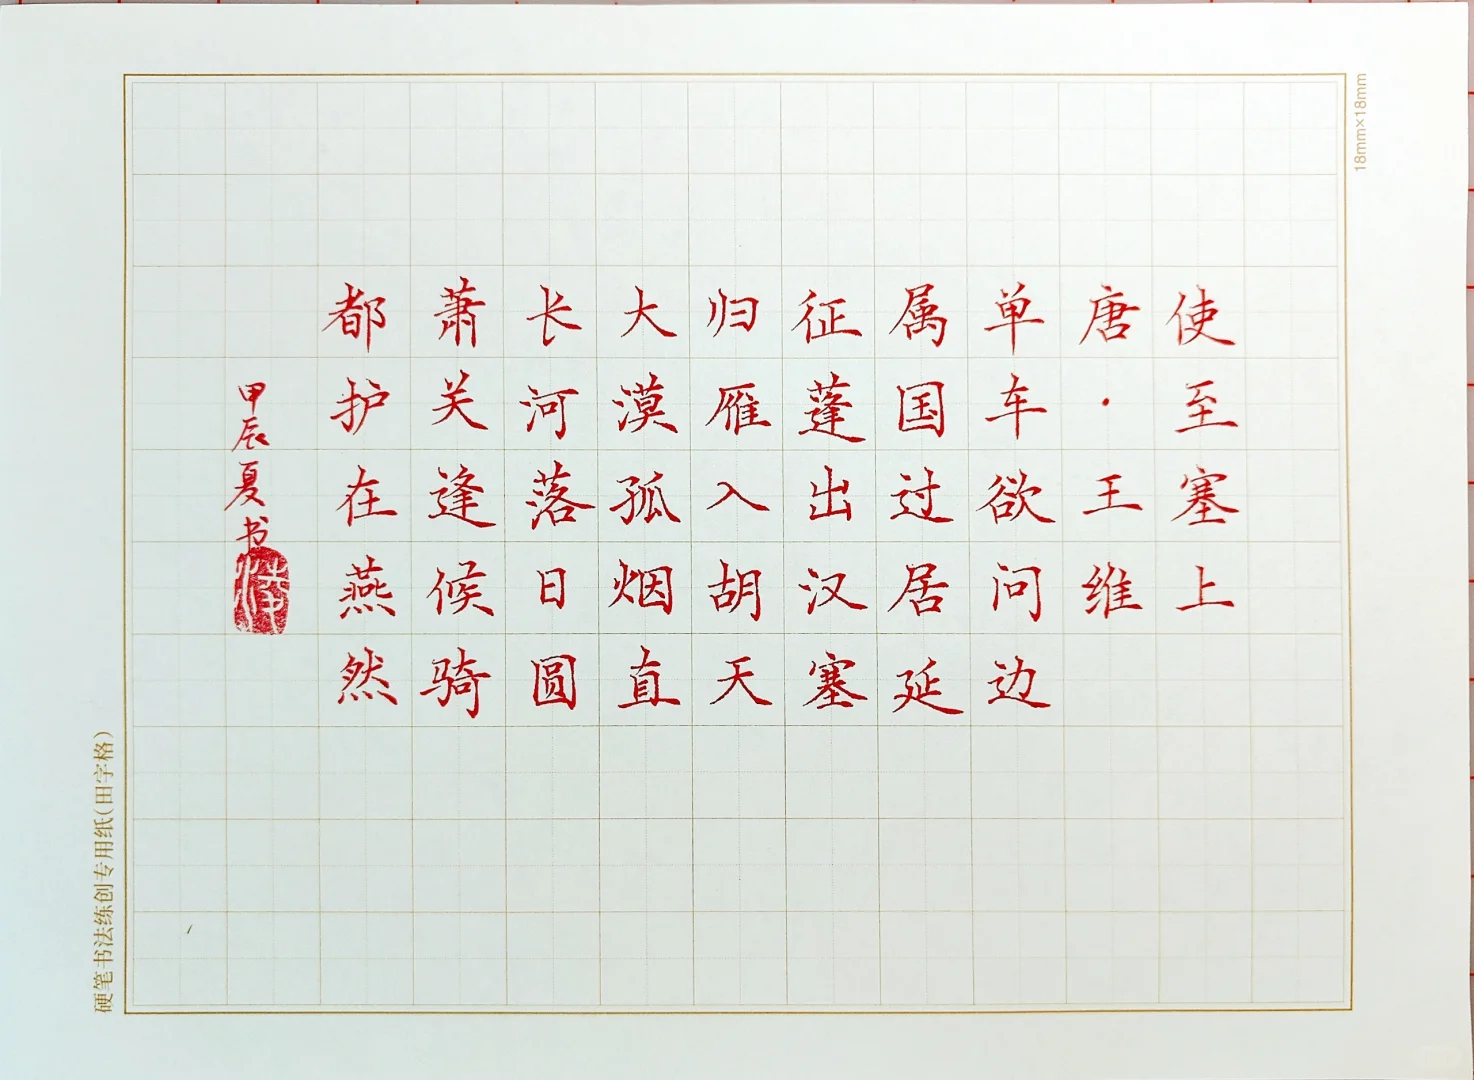 使至塞上
唐·王维
单车欲问边
属国过居延
征蓬出汉塞
归雁入胡天
大漠孤烟直
长河落日圆
萧关逢候骑
都护在燕然
甲辰夏书
硬笔书法练创专用纸(田字格)
18mm×18mm